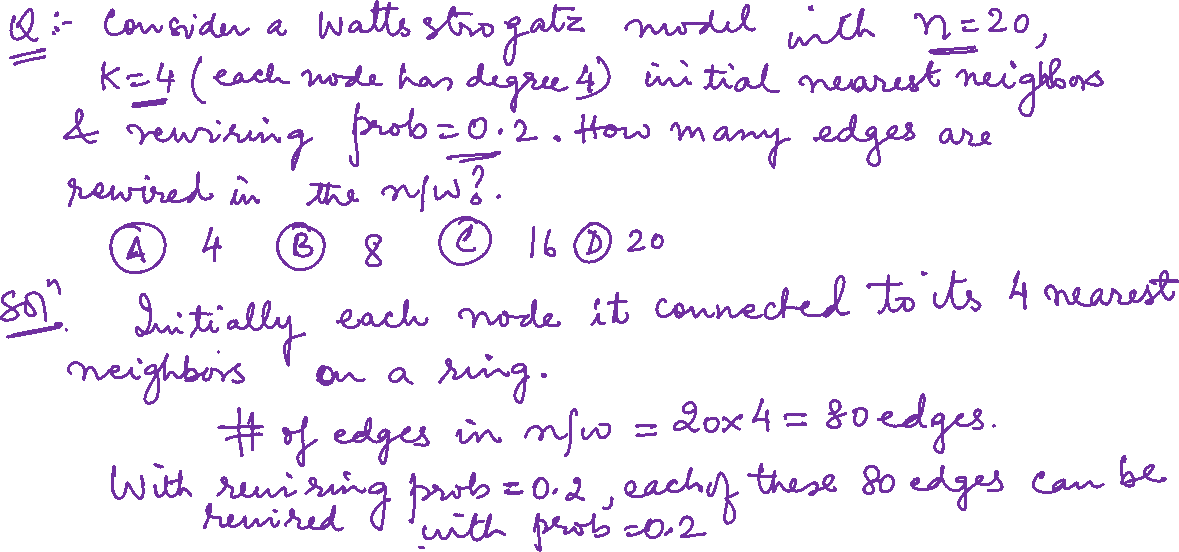 Q :- Consider a Watts strogatz model with n=20,
K=4 (each node has degree 4) initial nearest neighbors
& rewiring prob=0.2. How many edges are
rewired in the n/w?
(A) 4 (B) 8 (C) 16 (D) 20
Solⁿ. Initially each node it connected to its 4 nearest
neighbors on a ring.
# of edges in n/w = 20x4 = 80 edges.
With rewiring prob = 0.2, each of these 80 edges can be
rewired with prob=0.2